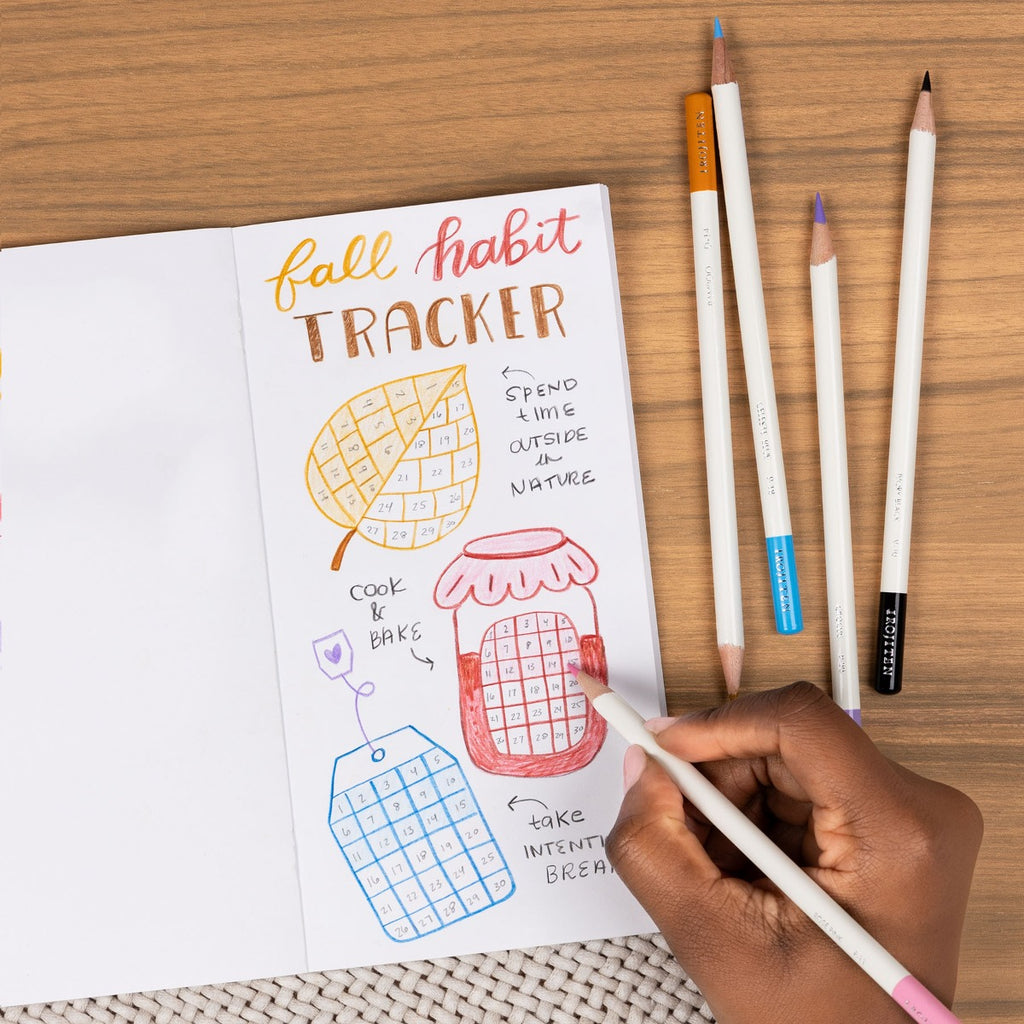 fall habit
TRACKER
SPEND
time
OUTSIDE
in
NATURE
1
2
3
4
5
6
7
8
9
11
12
13
14
15
16
17
18
19
20
21
22
23
24
25
26
27
28
29
30
COOK
&
BAKE
1 2 3 4 5
6 7 8 9 10
11 12 13 14
16 17 18 19 20
21 22 23 24 25
26 27 28 29 30
1 2 3 4 5
6 7 8 9 10
11 12 13 14 15
16 17 18 19 20
21 22 23 24 25
26 27 28 29 30
take
INTENTI
BREA
IROJITEN
IROJITEN
IROJITEN